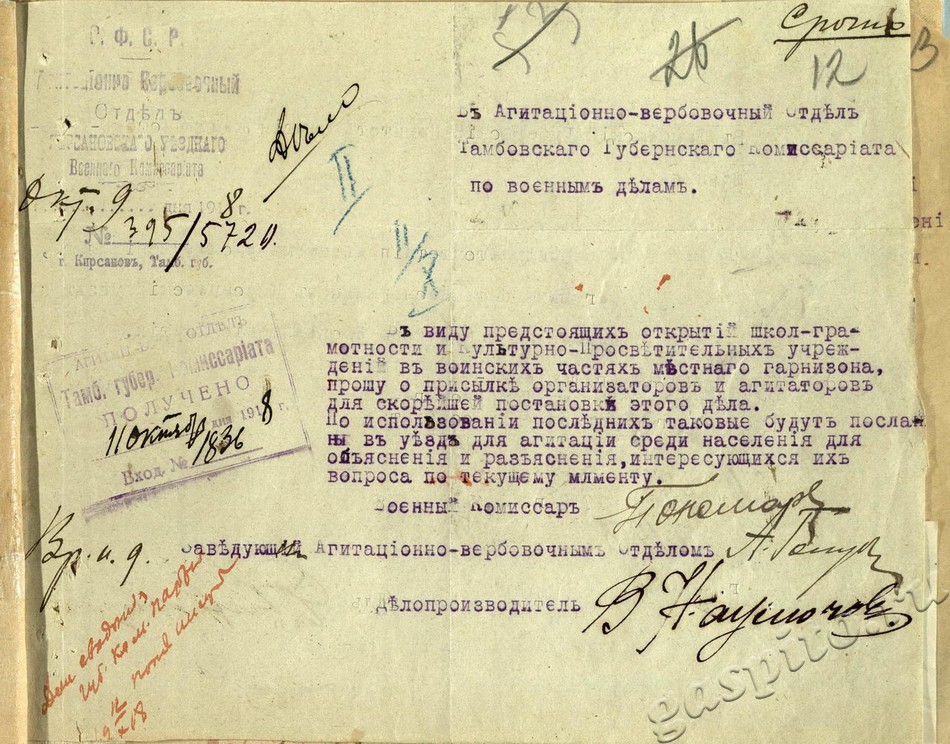 Срочно
26
12
Р. Ф. С. Р.
Агитаціонно Вербовочный
Отдѣлъ
Кирсановскаго Уѣзднаго
Военнаго Комиссаріата
Окт. 9 дня 1918 г.
№ 395/5720.
г. Кирсановъ, Тамб. губ.
Въ Агитаціонно-вербовочный Отдѣлъ
Тамбовскаго Губернскаго Комиссаріата
по военнымъ дѣламъ.
II
11/X
Въ виду предстоящихъ открытій школ-гра-
мотности и Культурно-Просвѣтительныхъ учреж-
деній въ воинскихъ частяхъ мѣстнаго гарнизона,
прошу о присылкѣ организаторовъ и агитаторовъ
для скорѣйшей постановки этого дѣла.
По использованіи послѣднихъ таковые будутъ послан
ны въ уѣздъ для агитаціи среди населенія для
объясненія и разъясненія,интересующихся ихъ
вопроса по текущему млменту.
ОТДѢЛЪ
Тамб. губер. Комиссаріата
ПОЛУЧЕНО
11 октября дня 1918 г.
Вход. № 1836
Военный Комиссаръ
Вр. и. д. Завѣдующій Агитаціонно-вербовочнымъ Отдѣломъ
Дѣлопроизводитель В Наумочов
губ. ком. партии
12/X 18
gaspito.ru